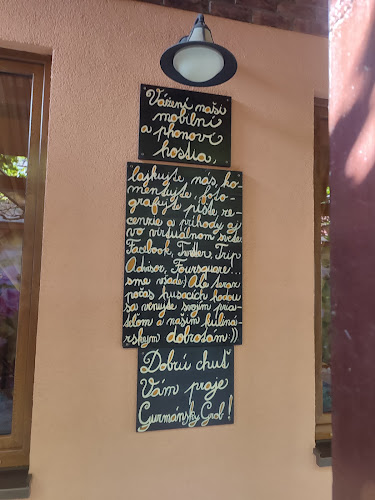 Vážení naši
mobilní
a phonoví
hostia,
lajkujte nás, ko-
mentujte, foto-
grafujte píšte re-
cenzie a príhody aj
vo virtuálnom svete.
Facebook, Twitter, Trip
Advisor, Foursquare...
sme všade:) Ale teraz
počas husacích hodov
sa venujte svojim pria-
teľom a našim kulinár-
skym dobrotám:))
Dobrú chuť
Vám praje
Gurmánsky Grob!